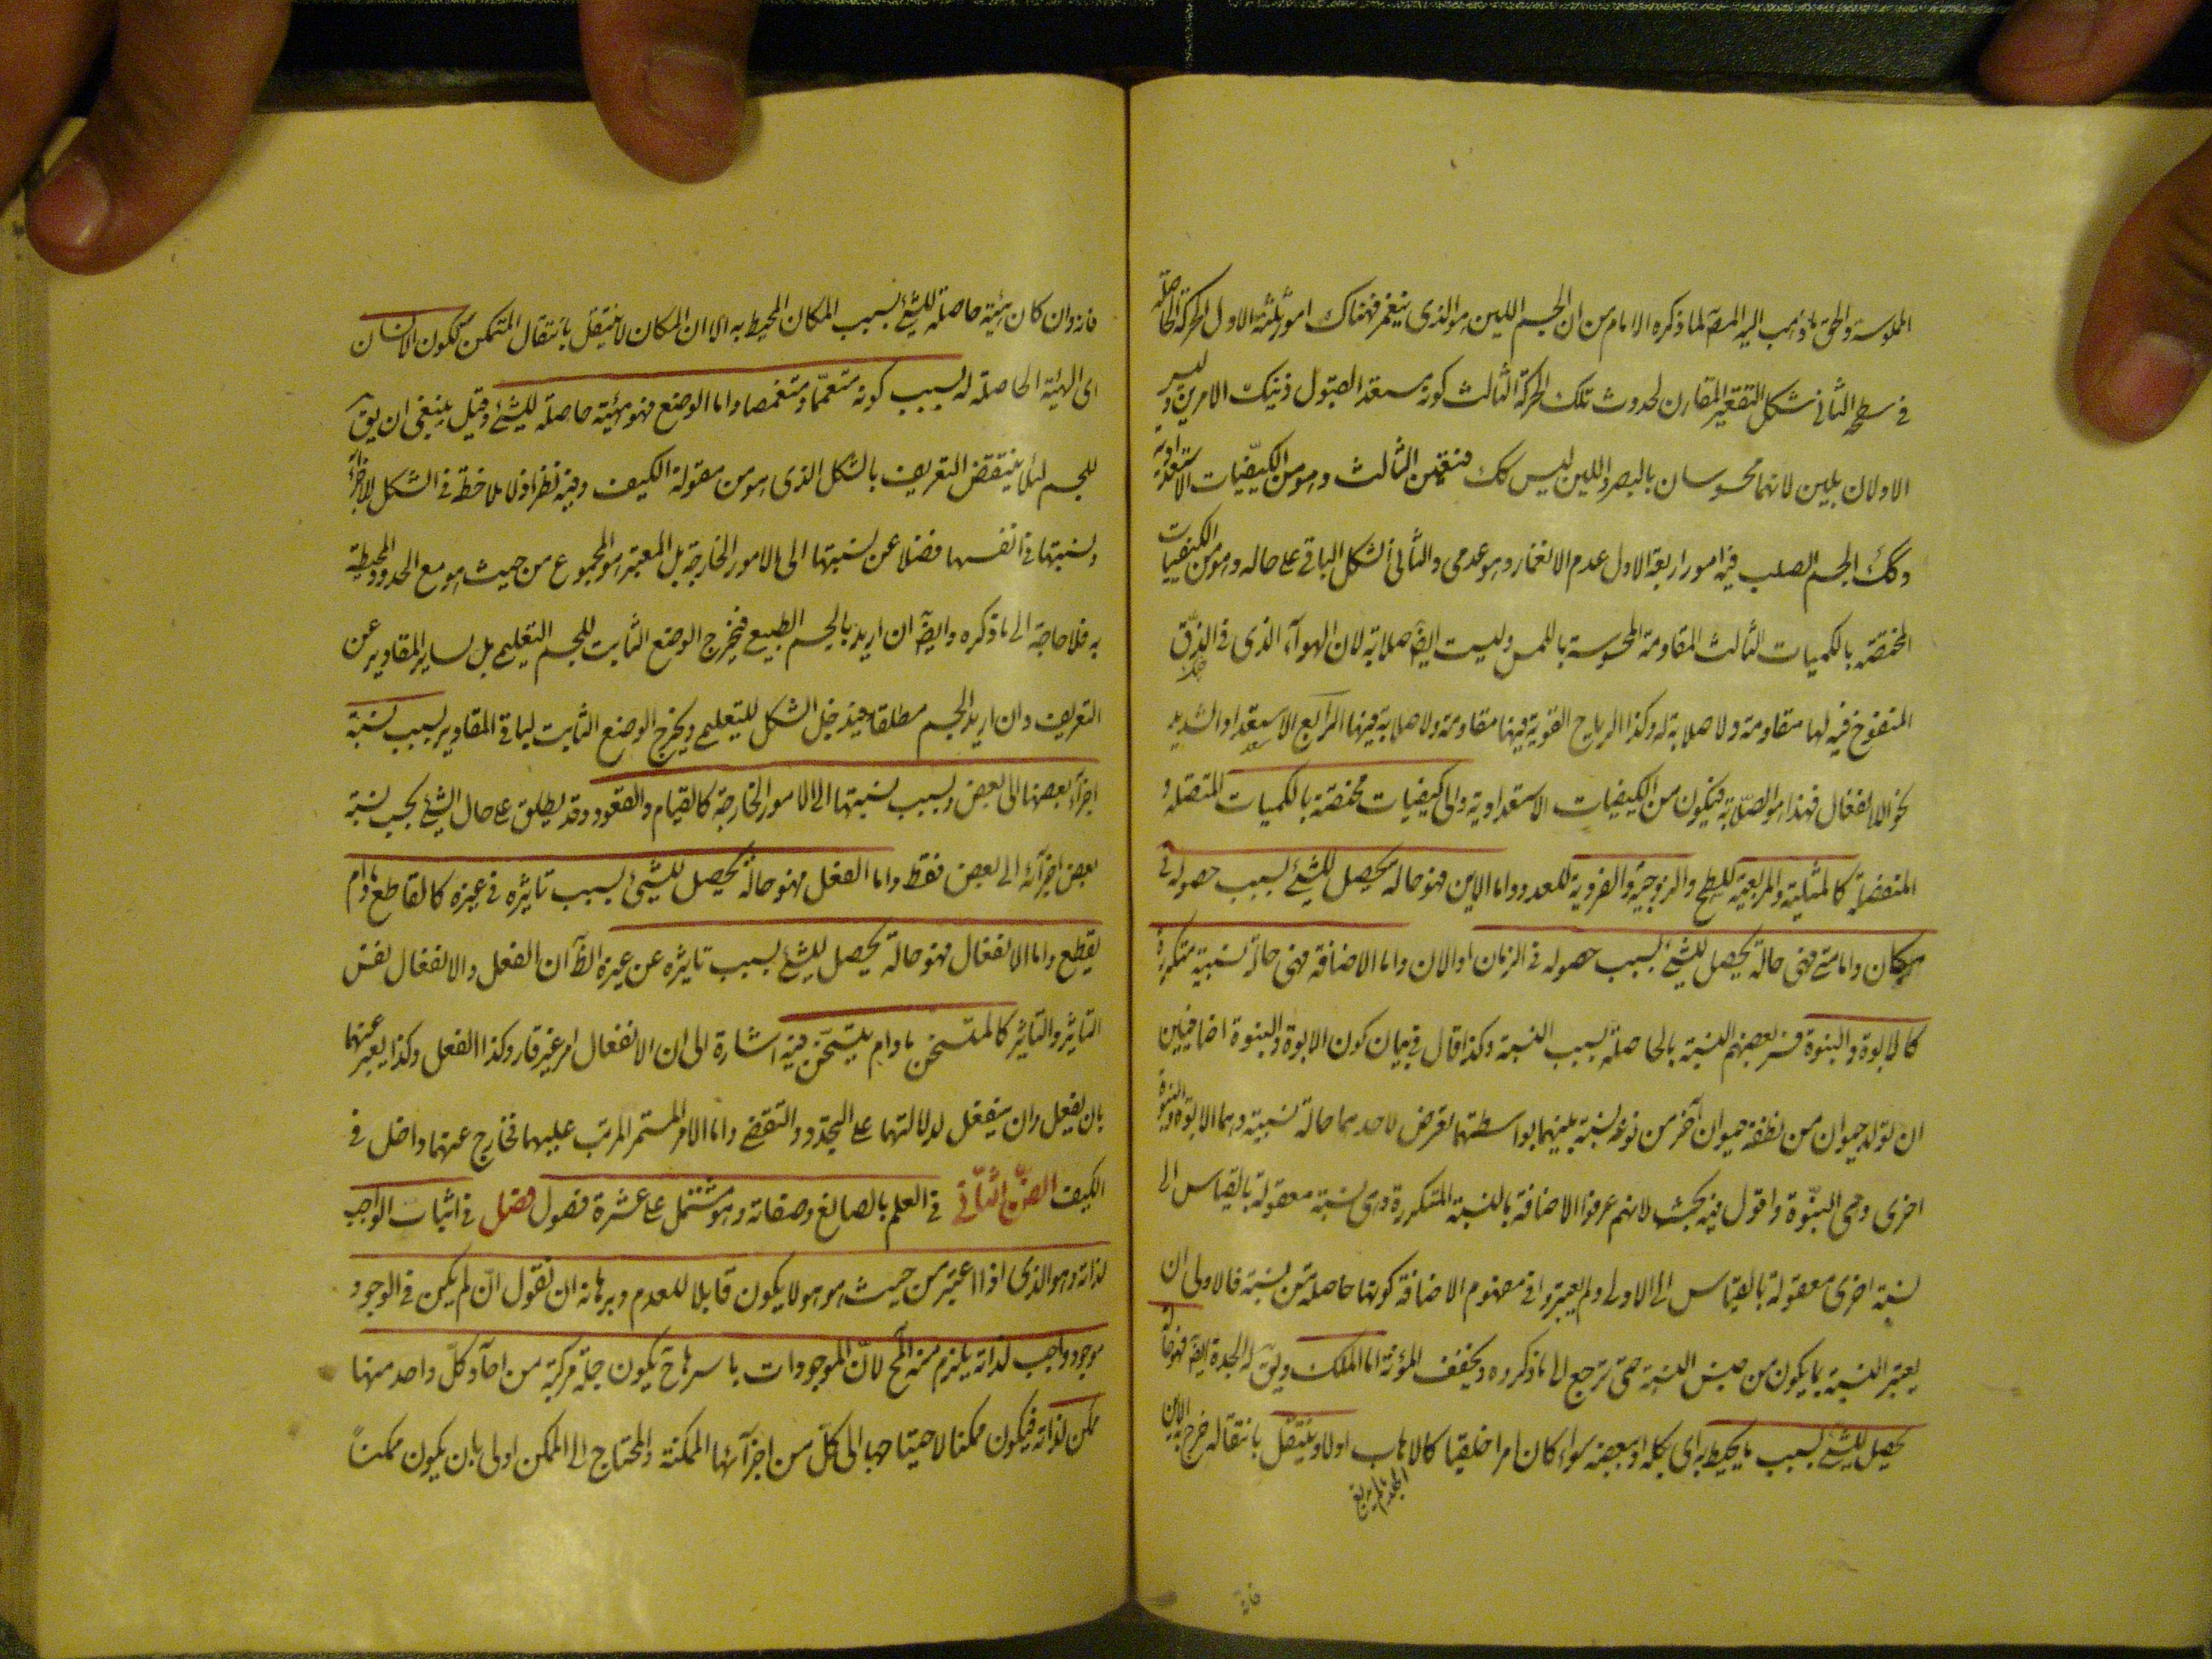 الملوسة والحق ما ذهب اليه المصّ لما ذكره الامام من ان الجسم اللين هو الذى ينغمز فهناك امور ثلثة الاول الحركة الحاصلة
فى سطحه الثانى شكل التقعير المقارن لحدوث تلك الحركة الثالث كونه مستعدا لقبول ذينك الامرين وليس
الاولان بلين لانهما محسوسان بالبصر واللين ليس كك فتعين الثالث وهو من الكيفيات الاستعدادية
وكك الجسم الصلب فيه امور اربعة الاول عدم الانغماز وهو عدمى والثانى الشكل الباقى على حاله وهو من الكيفيات
المختصة بالكميات الثالث المقاومة المحسوسة باللمس وليست ايضا صلابة لان الهوآء الذى فى الزق
المنفوخ فيه لها مقاومة ولا صلابة له وكذا الرياح القوية فيها مقاومة ولا صلابة فيها الرابع الاستعداد الشديد
نحو اللاانفعال فهذا هو الصلابة فيكون من الكيفيات الاستعدادية والى كيفيات مختصة بالكميات المتصلة و
المنفصلة كالمثلثية والمربعية للسطح والزوجية والفردية للعدد واما الاين فهو حالة يحصل للشئ بسبب حصوله فى
المكان واما متى فهى حالة يحصل للشئ بسبب حصوله فى الزمان او الان واما الاضافة فهى حالة نسبية متكررة
كالابوة والبنوة فسر بعضهم النسبية بالحاصلة بسبب النسبة وكذا قال فى بيان كون الابوة والبنوة اضافيين
ان تولد حيوان من نطفة حيوان آخر من نوعه نسبة بينهما بواسطتها تعرض لاحدهما حالة نسبية وهى الابوة وللاخر
اخرى وهى البنوة واقول فيه بحث لانهم عرفوا الاضافة بالنسبة المتكررة وهى نسبة معقولة بالقياس الى
نسبة اخرى معقولة بالقياس الى الاولى ولم يعتبروا فى مفهوم الاضافة كونها حاصلة من نسبة فالاولى ان
يعتبر النسبية بما يكون من جنس النسبة حتى ترجع الى ما ذكروه ويخفف المؤنة اما الملك ويقّ له الجدة ايضا فهو حالة
يحصل للشئ بسبب ما يحيط به اى بكله او ببعضه سواء كان امرا خلقيا كالاهاب اولا وينتقل بانتقاله خرج به الاين
فانه وان كان هيئة حاصلة للشئ بسبب المكان المحيط به الا ان المكان لا ينتقل بانتقال المتمكن ككون الانسان
اى الهيئة الحاصلة له بسبب كونه متعمّما ومتقمصا واما الوضع فهو هيئة حاصلة للشئ وقيل ينبغى ان يقّ
للجسم لئلا ينتقض التعريف بالشكل الذى هو من مقولة الكيف وفيه نظر اذ لا ملاحظة فى الشكل للاجزاء
ونسبتها فى انفسها فضلا عن نسبتها الى الامور الخارجة بل المعتبر هو المجموع من حيث هو مع الحدود المحيطة
به فلا حاجة الى ما ذكره وايضا ان اريد بالجسم الطبيعى فيخرج الوضع الثابت للجسم التعليمى بل لساير المقادير عن
التعريف وان اريد الجسم مطلقا فيدخل الشكل للتعليمى ويخرج الوضع الثابت لباقى المقادير بسبب نسبة
اجزآئه بعضها الى بعض وبسبب نسبتها الى الامور الخارجة كالقيام والقعود وقد يطلق على حال الشئ بحسب نسبة
بعض اجزآئه الى بعض فقط واما الفعل فهو حالة يحصل للشئ بسبب تاثيره فى غيره كالقاطع مادام
يقطع واما الانفعال فهو حالة يحصل للشئ بسبب تاثيره عن غيره الظّ ان الفعل والانفعال نفس
التاثير والتاثر كالمتسخن مادام يتسخّن فيه اشارة الى ان الانفعال امر غير قار وكذا الفعل وكذا يعبر عنهما
بان يفعل وان ينفعل لدلالتهما على التجدد والتقضى واما الامر المستمر المرتب عليهما فخارج عنهما داخل فى
الكيف الفن الثانى فى العلم بالصانع وصفاته وهو مشتمل على عشرة فصول فصل فى اثبات الواجب
لذاته وهو الذى اذا اعتبر من حيث هو هو لا يكون قابلا للعدم وبرهانه ان نقول ان لم يكن فى الوجود
موجود واجب لذاته يلزم منه المح لانّ الموجودات باسرها ح يكون جملة مركبة من احاد كلّ واحد منها
ممكن لذاته فيكون ممكنا لاحتياجها الى كلّ من اجزآئها الممكنة والمحتاج الى الممكن اولى بان يكون ممكناً